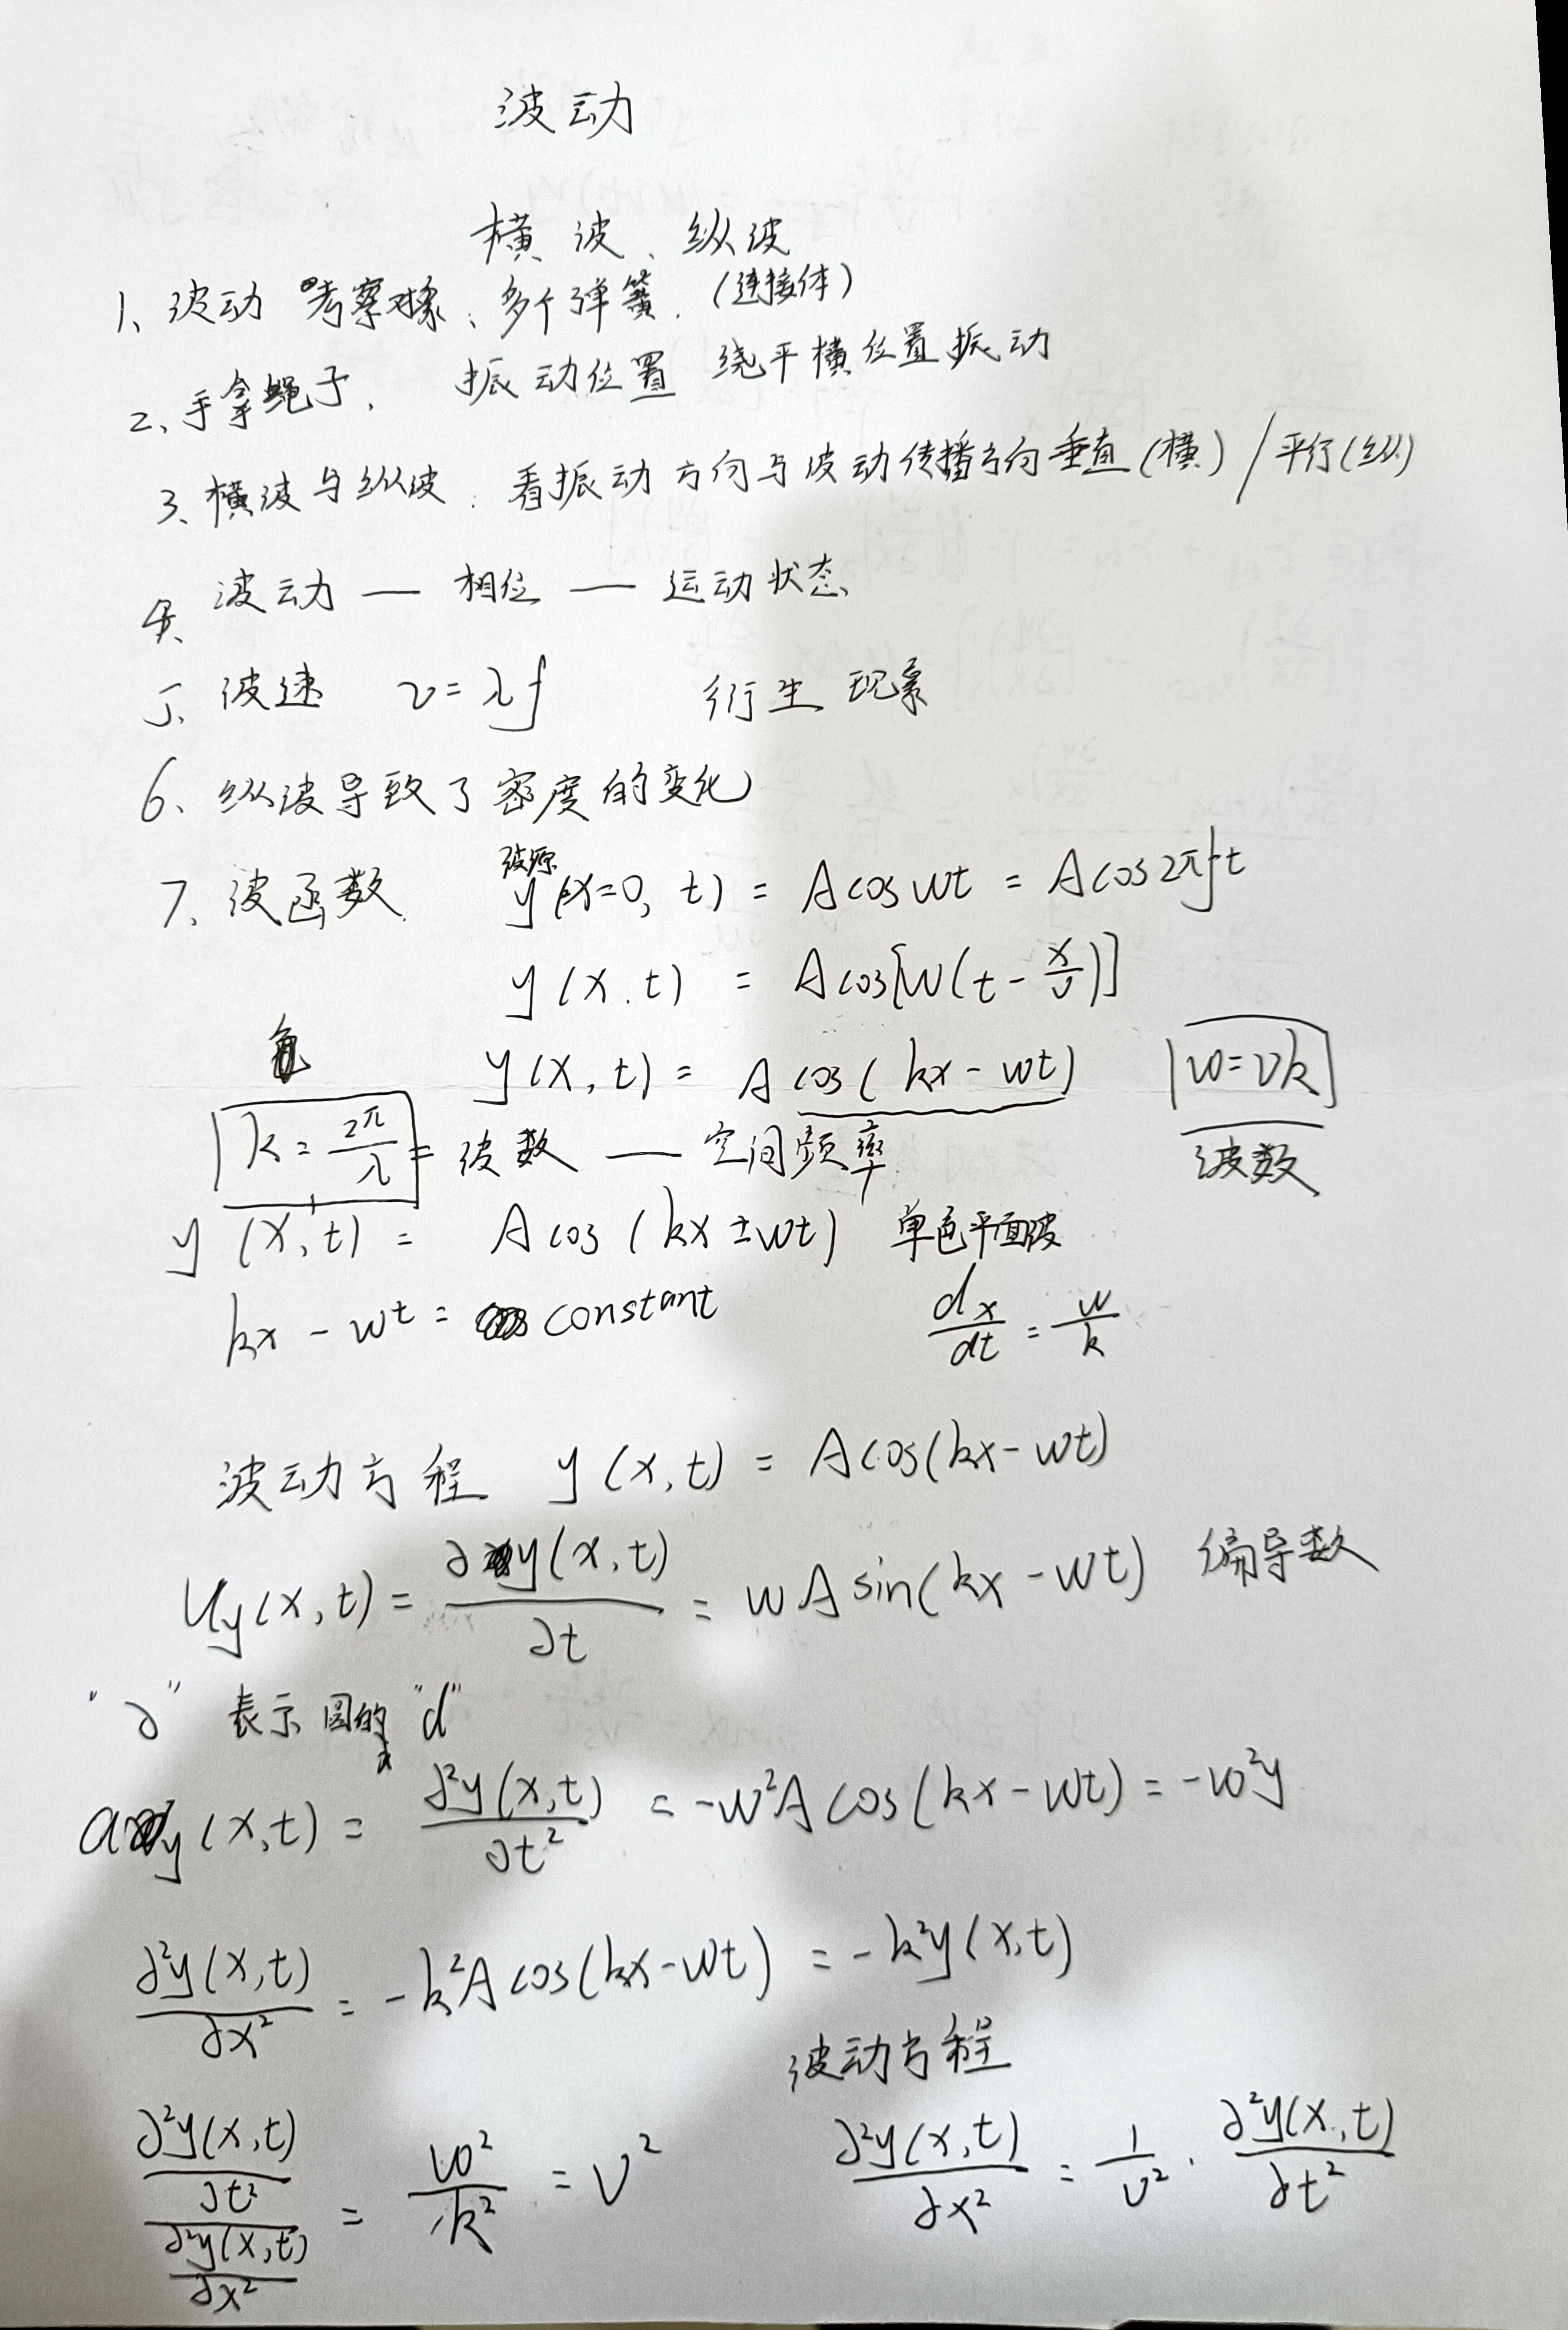 波动
横波、纵波
1、波动 考察对象、多个弹簧.(连接体)
2、手拿绳子. 振动位置 绕平横位置振动
3、横波与纵波:看振动方向与波动传播方向垂直(横)/平行(纵)
4、波动 — 相位 — 运动状态
5、波速 v=λf 衍生现象
6、纵波导致了密度的变化
7、波函数. 波源 y(x=0, t) = Acoswt = Acos2πft
y(x.t) = Acos[w(t-x/v)]
y(x,t) = Acos(kx-wt) w=vk
k=2π/λ = 波数 — 空间频率 波数
y(x,t) = Acos(kx±wt) 单色平面波
kx-wt = constant dx/dt = w/k
波动方程 y(x,t) = Acos(kx-wt)
Uy(x,t) = ∂y(x,t)/∂t = wAsin(kx-wt) 偏导数
"∂" 表示圆的 "d"
ay(x,t) = ∂²y(x,t)/∂t² = -w²Acos(kx-wt) = -w²y
∂²y(x,t)/∂x² = -k²Acos(kx-wt) = -k²y(x,t)
波动方程
(∂²y(x,t)/∂t²)/(∂²y(x,t)/∂x²) = w²/k² = v² ∂²y(x,t)/∂x² = 1/v² · ∂²y(x,t)/∂t²